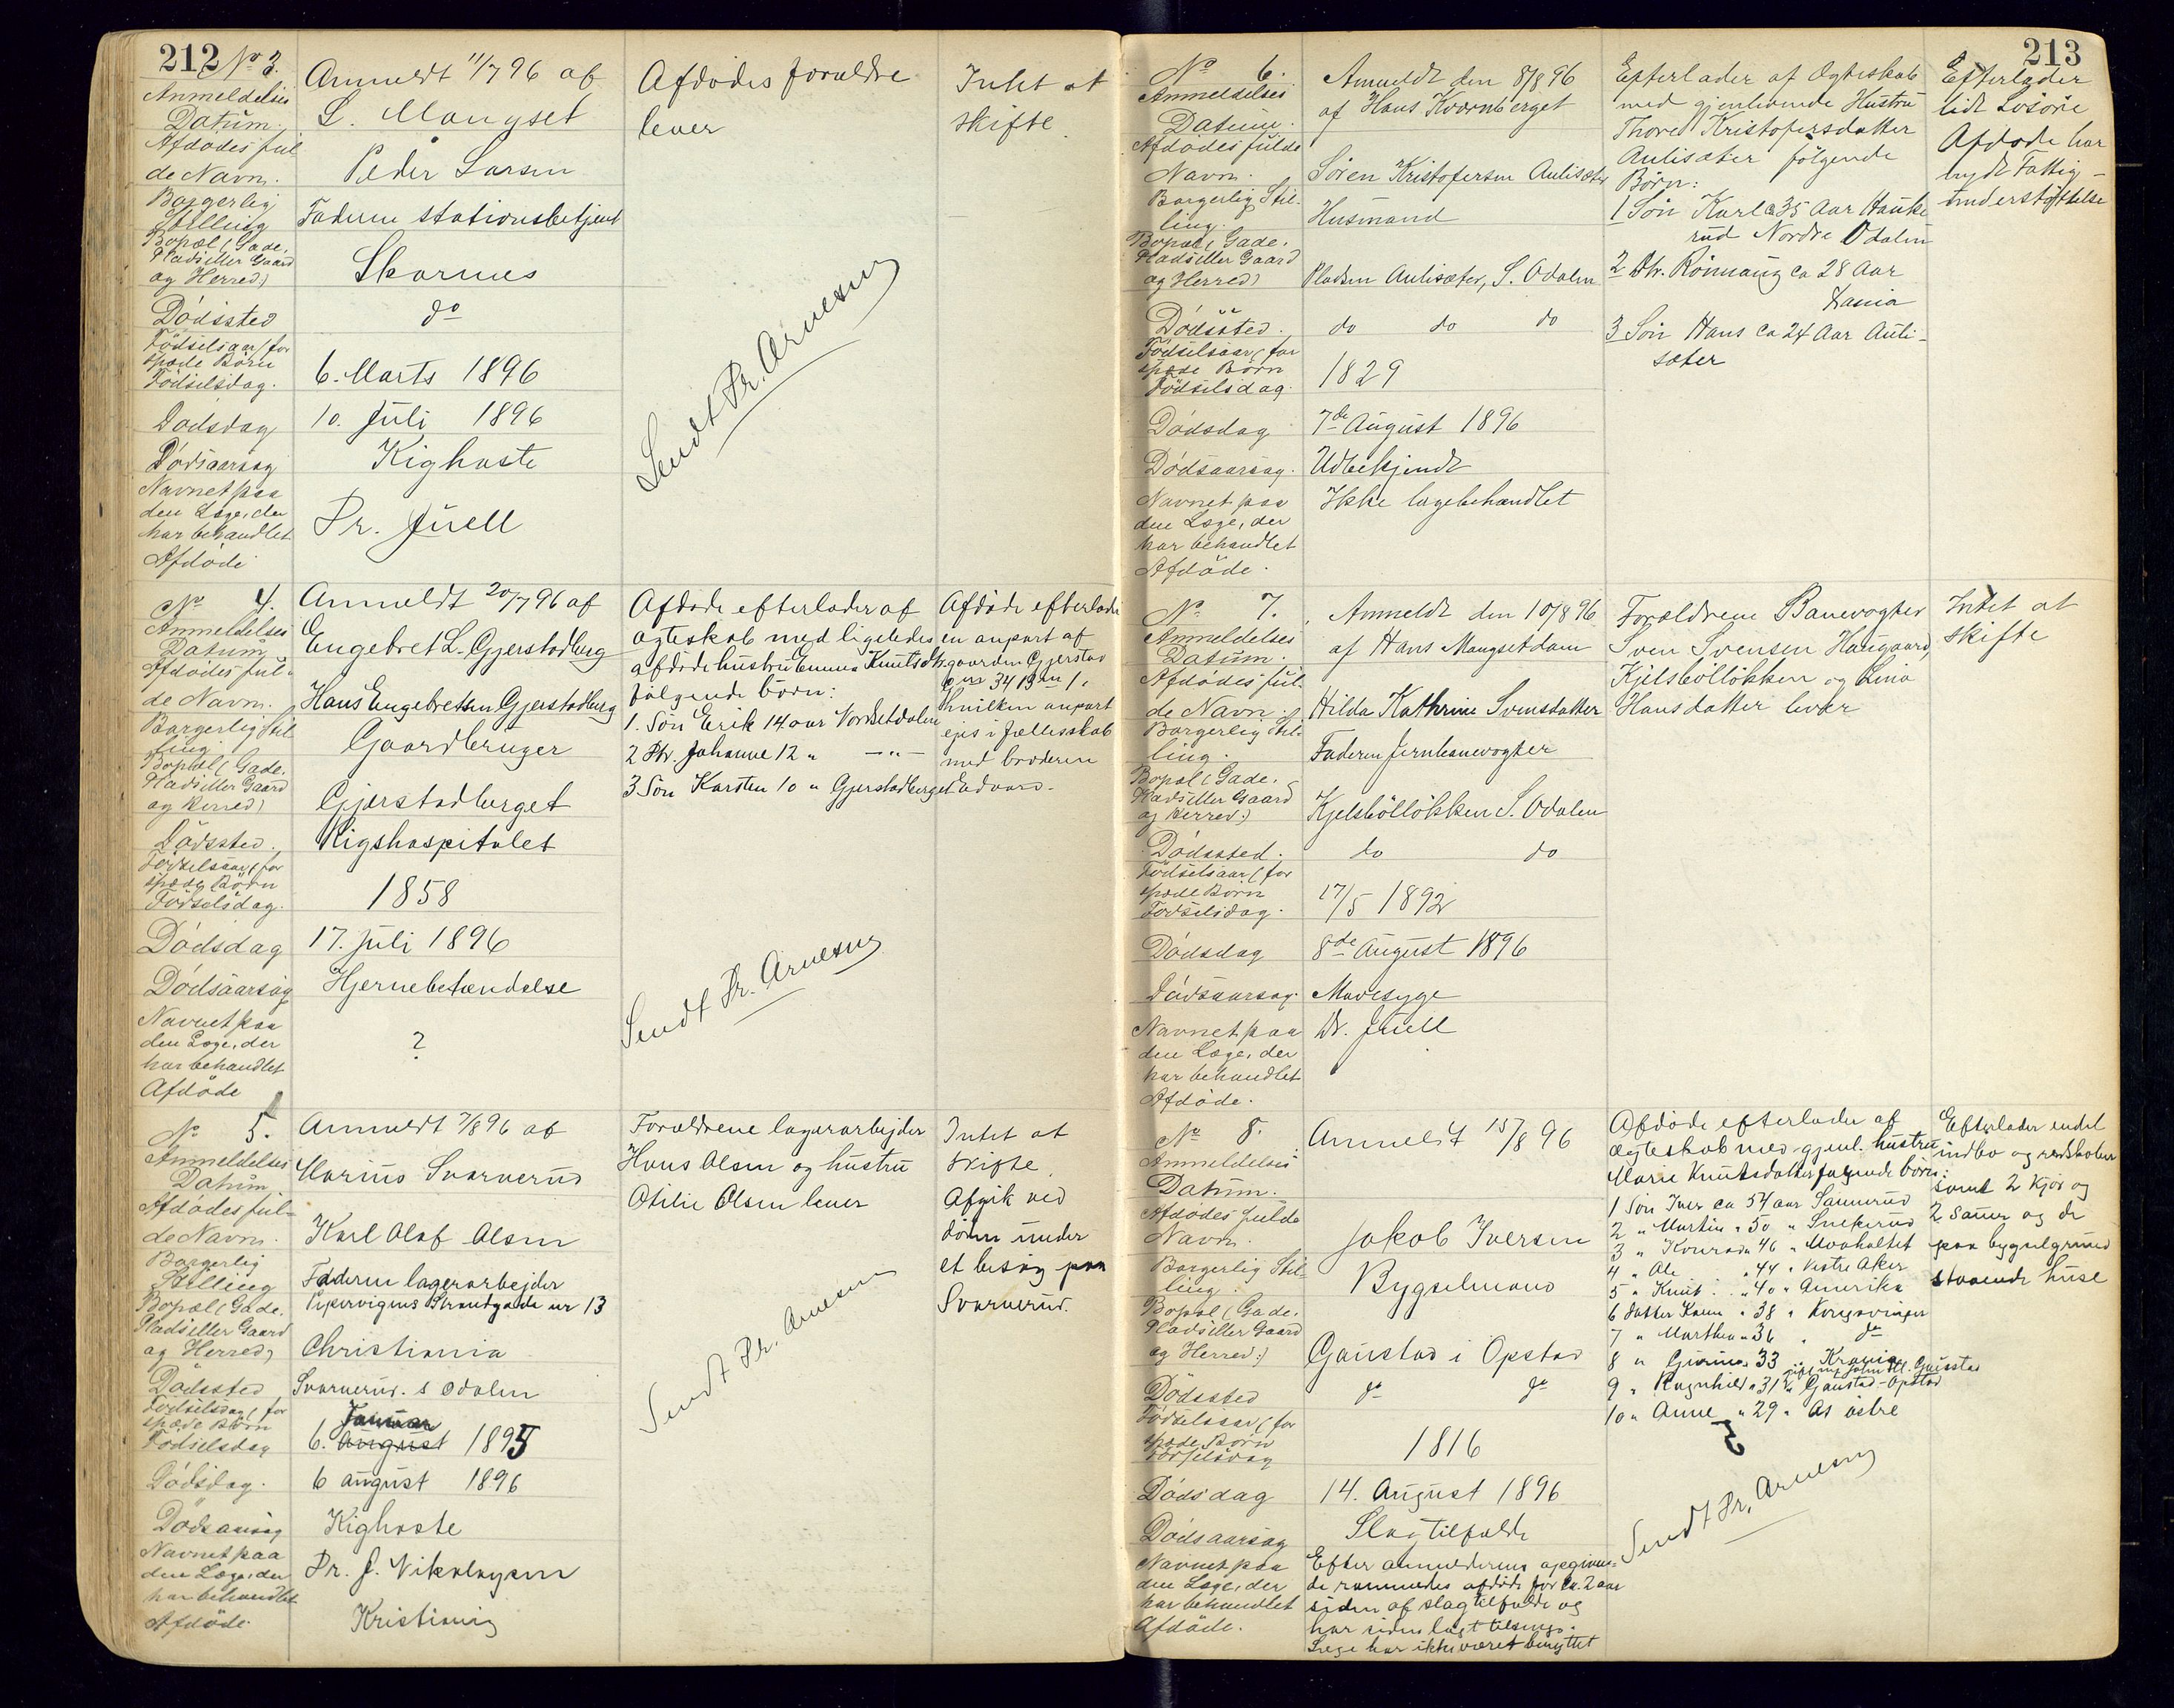 212 No 3.
Anmeldelses
Datum.
Afdødes ful
de Navn.
Borgerlig
Stilling
Bopæl (Gade,
Plads eller Gaard
og Herred)
Dödssted
Födselsaar (for
spæde Börn
Födselsdag.
Dödsdag
Dödsaarsag
Navnet paa
den Læge, der
har behandlet
Afdöde
Anmeldt 11/7 96 af
L. Mangset
Peder Larsen
Faderen stationsbetjent
Skarnes
do
6. Marts 1896
10. Juli 1896
Kighoste
Dr. Juell
Afdødes forældre
lever
Sendt Pr. Arnesen
Intet at
skifte
No 4.
Anmeldelses
Datum
Afdødes ful-
de Navn.
Borgerlig Stil
ling
Bopæl (Gade,
Plads eller Gaard
og Herred)
Dödssted.
Födselsaar (for
spæde Börn
Födselsdag.
Dödsdag
Dödsaarsag
Navnet paa
den Læge, der
har behandlet
Afdöde
Anmeldt 20/7 96 af
Engebret L. Gjerstadberg
Hans Engebretsen Gjerstadberg
Gaardbruger
Gjerstadberget
Rigshospitalet
1858
17. juli 1896
Hjernebetændelse
?
Afdøde efterlader af
ægteskab med ligeledes
afdøde hustru Emma Knutsdtr
følgende børn:
1. Søn Erik 14 aar
2 Dtr. Johanne 12 " —"—
3 Søn Karsten 10 " Gjerstadberget
Sendt Pr. Arnesen
Afdøde efterlader
en anpart af
gaarden Gjerstad
gnr 34 bnr 1,
hvilken anpart
ejes i fællesskab
med broderen
Edvard.
No 5.
Anmeldelses
Datum
Afdødes ful-
de Navn.
Borgerlig
Stilling
Bopæl (Gade,
Plads eller Gaard
og Herred)
Dödssted
Födselsdag (for
spæde Börn
Födselsdag
Dödsdag.
Dödsaarsag
Navnet paa
den Læge, der
har behandlet
Afdöde
Anmeldt 7/8 96 af
Marius Svarverud
Karl Olaf Olsen
Faderen lagerarbejder
Pipervigens Strandgade nr 13
Christiania
Svarverud. S Odalen
Januar
6. August 1895
6 august 1896
Kighoste
Dr. J. Nikolaysen
Kristiania
Forældrene lagerarbejder
Hans Olsen og hustru
Otilie Olsen lever
Sendt Pr. Arnesen
Intet at
skifte.
Afgik ved
døden under
et besøg paa
Svarverud.
213
No 6.
Anmeldelses
Datum.
Afdødes fulde
Navn.
Borgerlig Stil-
ling.
Bopæl (Gade,
Plads eller Gaard
og Herred)
Dödssted.
Födselsaar (for
spæde Börn
Födselsdag.
Dödsdag
Dödsaarsag.
Navnet paa
den Læge, der
har behandlet
Afdöde.
Anmeldt den 8/8 96
af Hans Kværnberget
Sören Kristofersen Aulisæter
Husmand
Pladsen Aulisæter, S. Odalen
do do do
1829
7de August 1896
Ubekjendt
Ikke lægebehandlet
Efterlader af Ægteskab
med gjenlevende Hustru
Thore Kristofersdatter
Aulisæter følgende
Börn:
1 Søn Karl ca 35 Aar Hauke
rud Nordre Odalen
2 Dtr. Rönnaug ca 28 Aar
3 Søn Hans ca 24 Aar Auli-
sæter
Efterlader
lidt Løsøre
Afdøde har
nydt Fattig-
understöttelse
No 7.
Anmeldelses
Datum.
Afdødes ful-
de Navn.
Borgerlig Stil-
ling.
Bopæl (Gade,
Plads eller Gaard
og Herred.)
Dödssted.
Födselsaar (for
spæde Börn
Födselsdag.
Dödsdag
Dödsaarsag.
Navnet paa
den Læge, der
har behandlet
Afdöde.
Anmeldt den 10/8 96
af Hans Mangsetdam
Hilda Kathrine Svensdatter
Faderen Jernbanevogter
Kjelsböllökken S. Odalen
do do
17/5 1892
8de August 1896
Mavesyge
Dr. Juell
Forældrene Banevogter
Sven Svensen Haugaard,
Kjelsböllökken og Lina
Hansdatter lever
Intet at
skifte
No 8.
Anmeldelses
Datum.
Afdødes fulde
Navn.
Borgerlig Stil-
ling.
Bopæl (Gade,
Plads eller Gaard
og Herred.)
Dödssted
Födselsaar (for
spæde Börn
Födselsdag
Dödsdag
Dödsaarsag
Navnet paa
den Læge, der
har behandlet
Afdöde.
Anmeldt 15/8 96
Jakob Iversen
Bygselmand
Gaustad i Opstad
do do
1816
14. August 1896
Slagtilfælde
Efter anmelderens opgiven-
de rammedes afdøde for ca. 2 aar
siden af slagtilfælde og
har siden ligget tilsengs.
Læge har ikke været benyttet
Afdøde efterlader af
ægteskab med gjenl. hustru
Marie Knutsdatter følgende børn:
1 Søn Iver ca 54 aar Sannerud
2 " Martin " 50 " Snekerud
3 " Konrad " 46 " Moaholtet
4 " Ole " 44 " Vestre Aker
5 " Knut " 40 " Amerika
6 Datter Karen " 38 " Kongsvinger
7 " Marthea " 36 " do
8 " " 33 Krania
9 " Ragnhild " 31 " Gaustad-Opstad
10 " Anne " 29 " Os østre
Sendt Pr. Arnesen
Efterlader endel
indbo og redskaber
samt 2 kjør og
2 sauer og de
paa bygselgrund
staaende huse